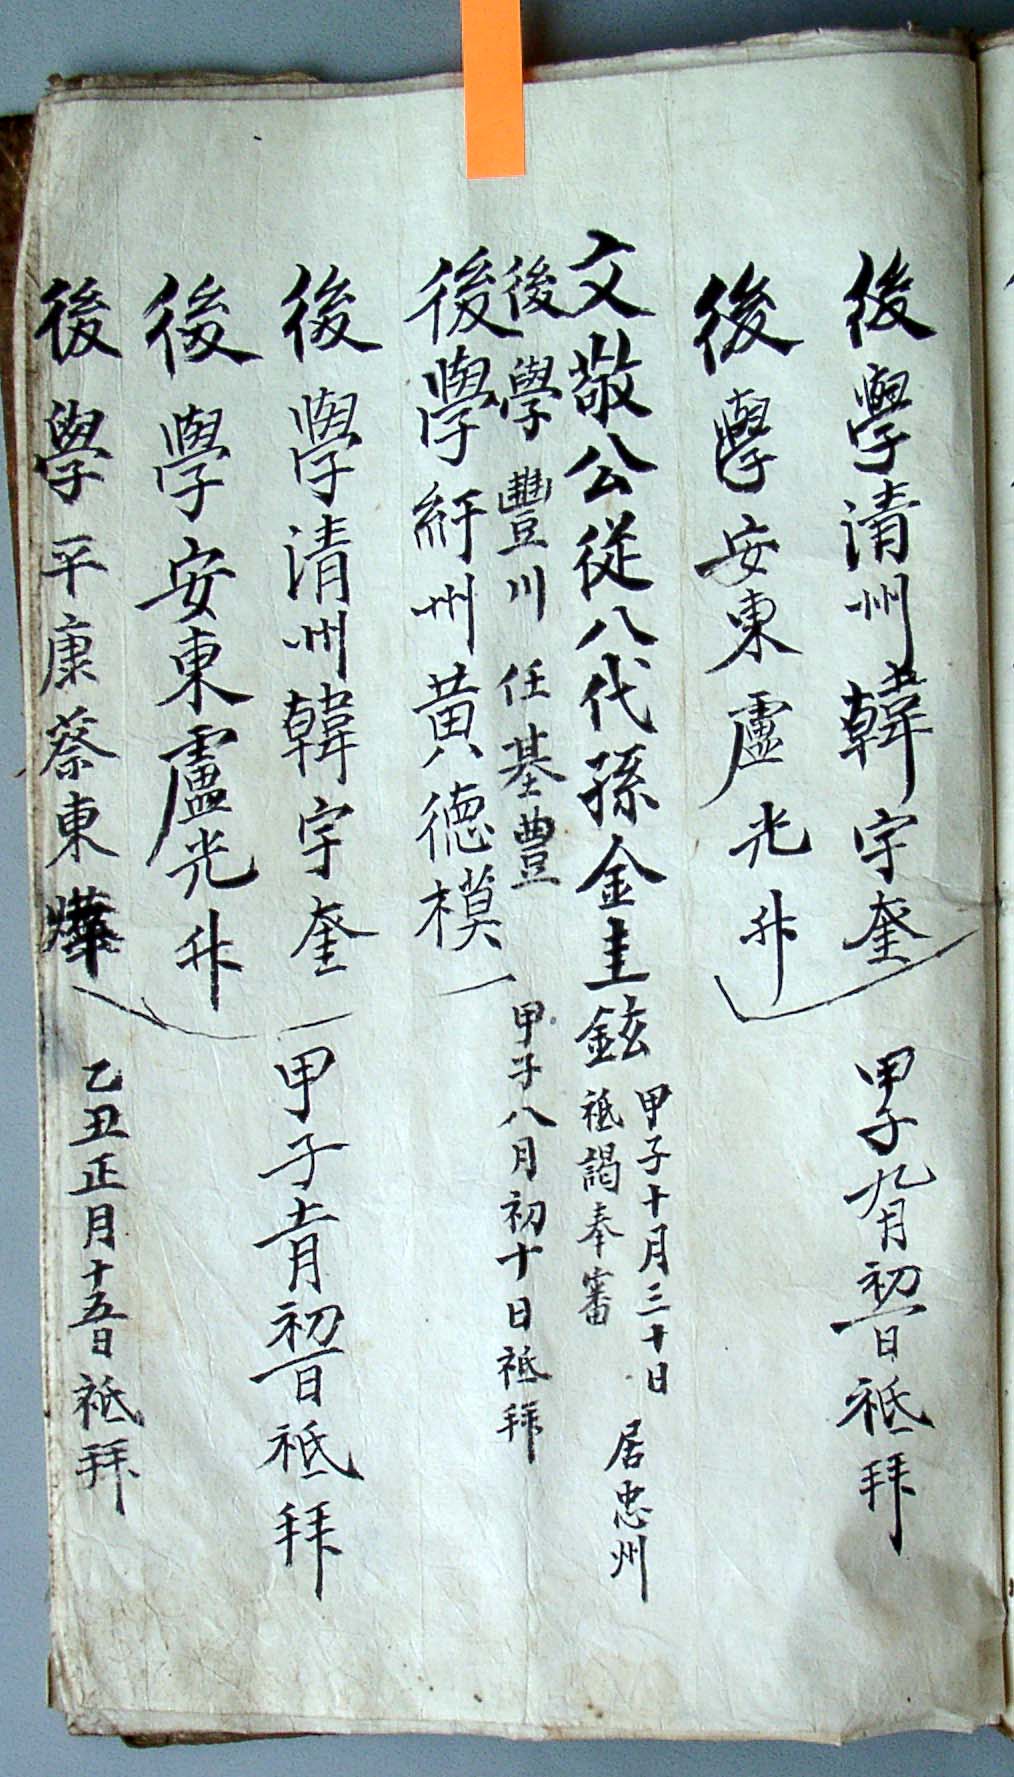 後學清州韓宇奎
甲子九月初一日祗拜
後學安東盧光升
文敬公從八代孫金圭鉉
甲子十月三十日
祗謁奉審
居忠州
後學豐川任基豊
甲子八月初十日祗拜
後學紆州黃德模
後學清州韓宇奎
甲子十一月初一日祗拜
後學安東盧光升
後學平康蔡東
乙丑正月十五日祗拜